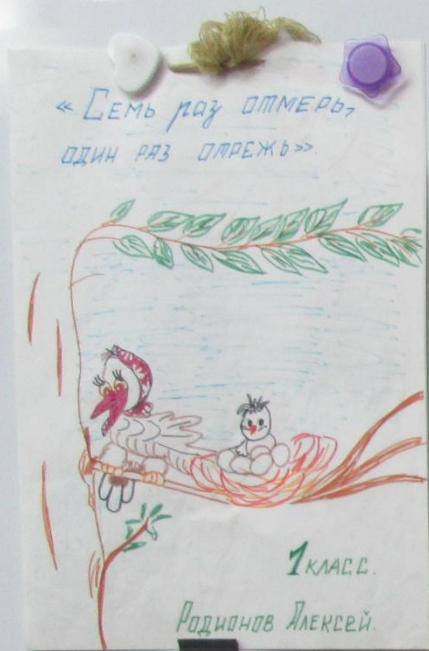 « Семь раз отмерь,
один раз отрежь».
1 класс.
Родионов Алексей.